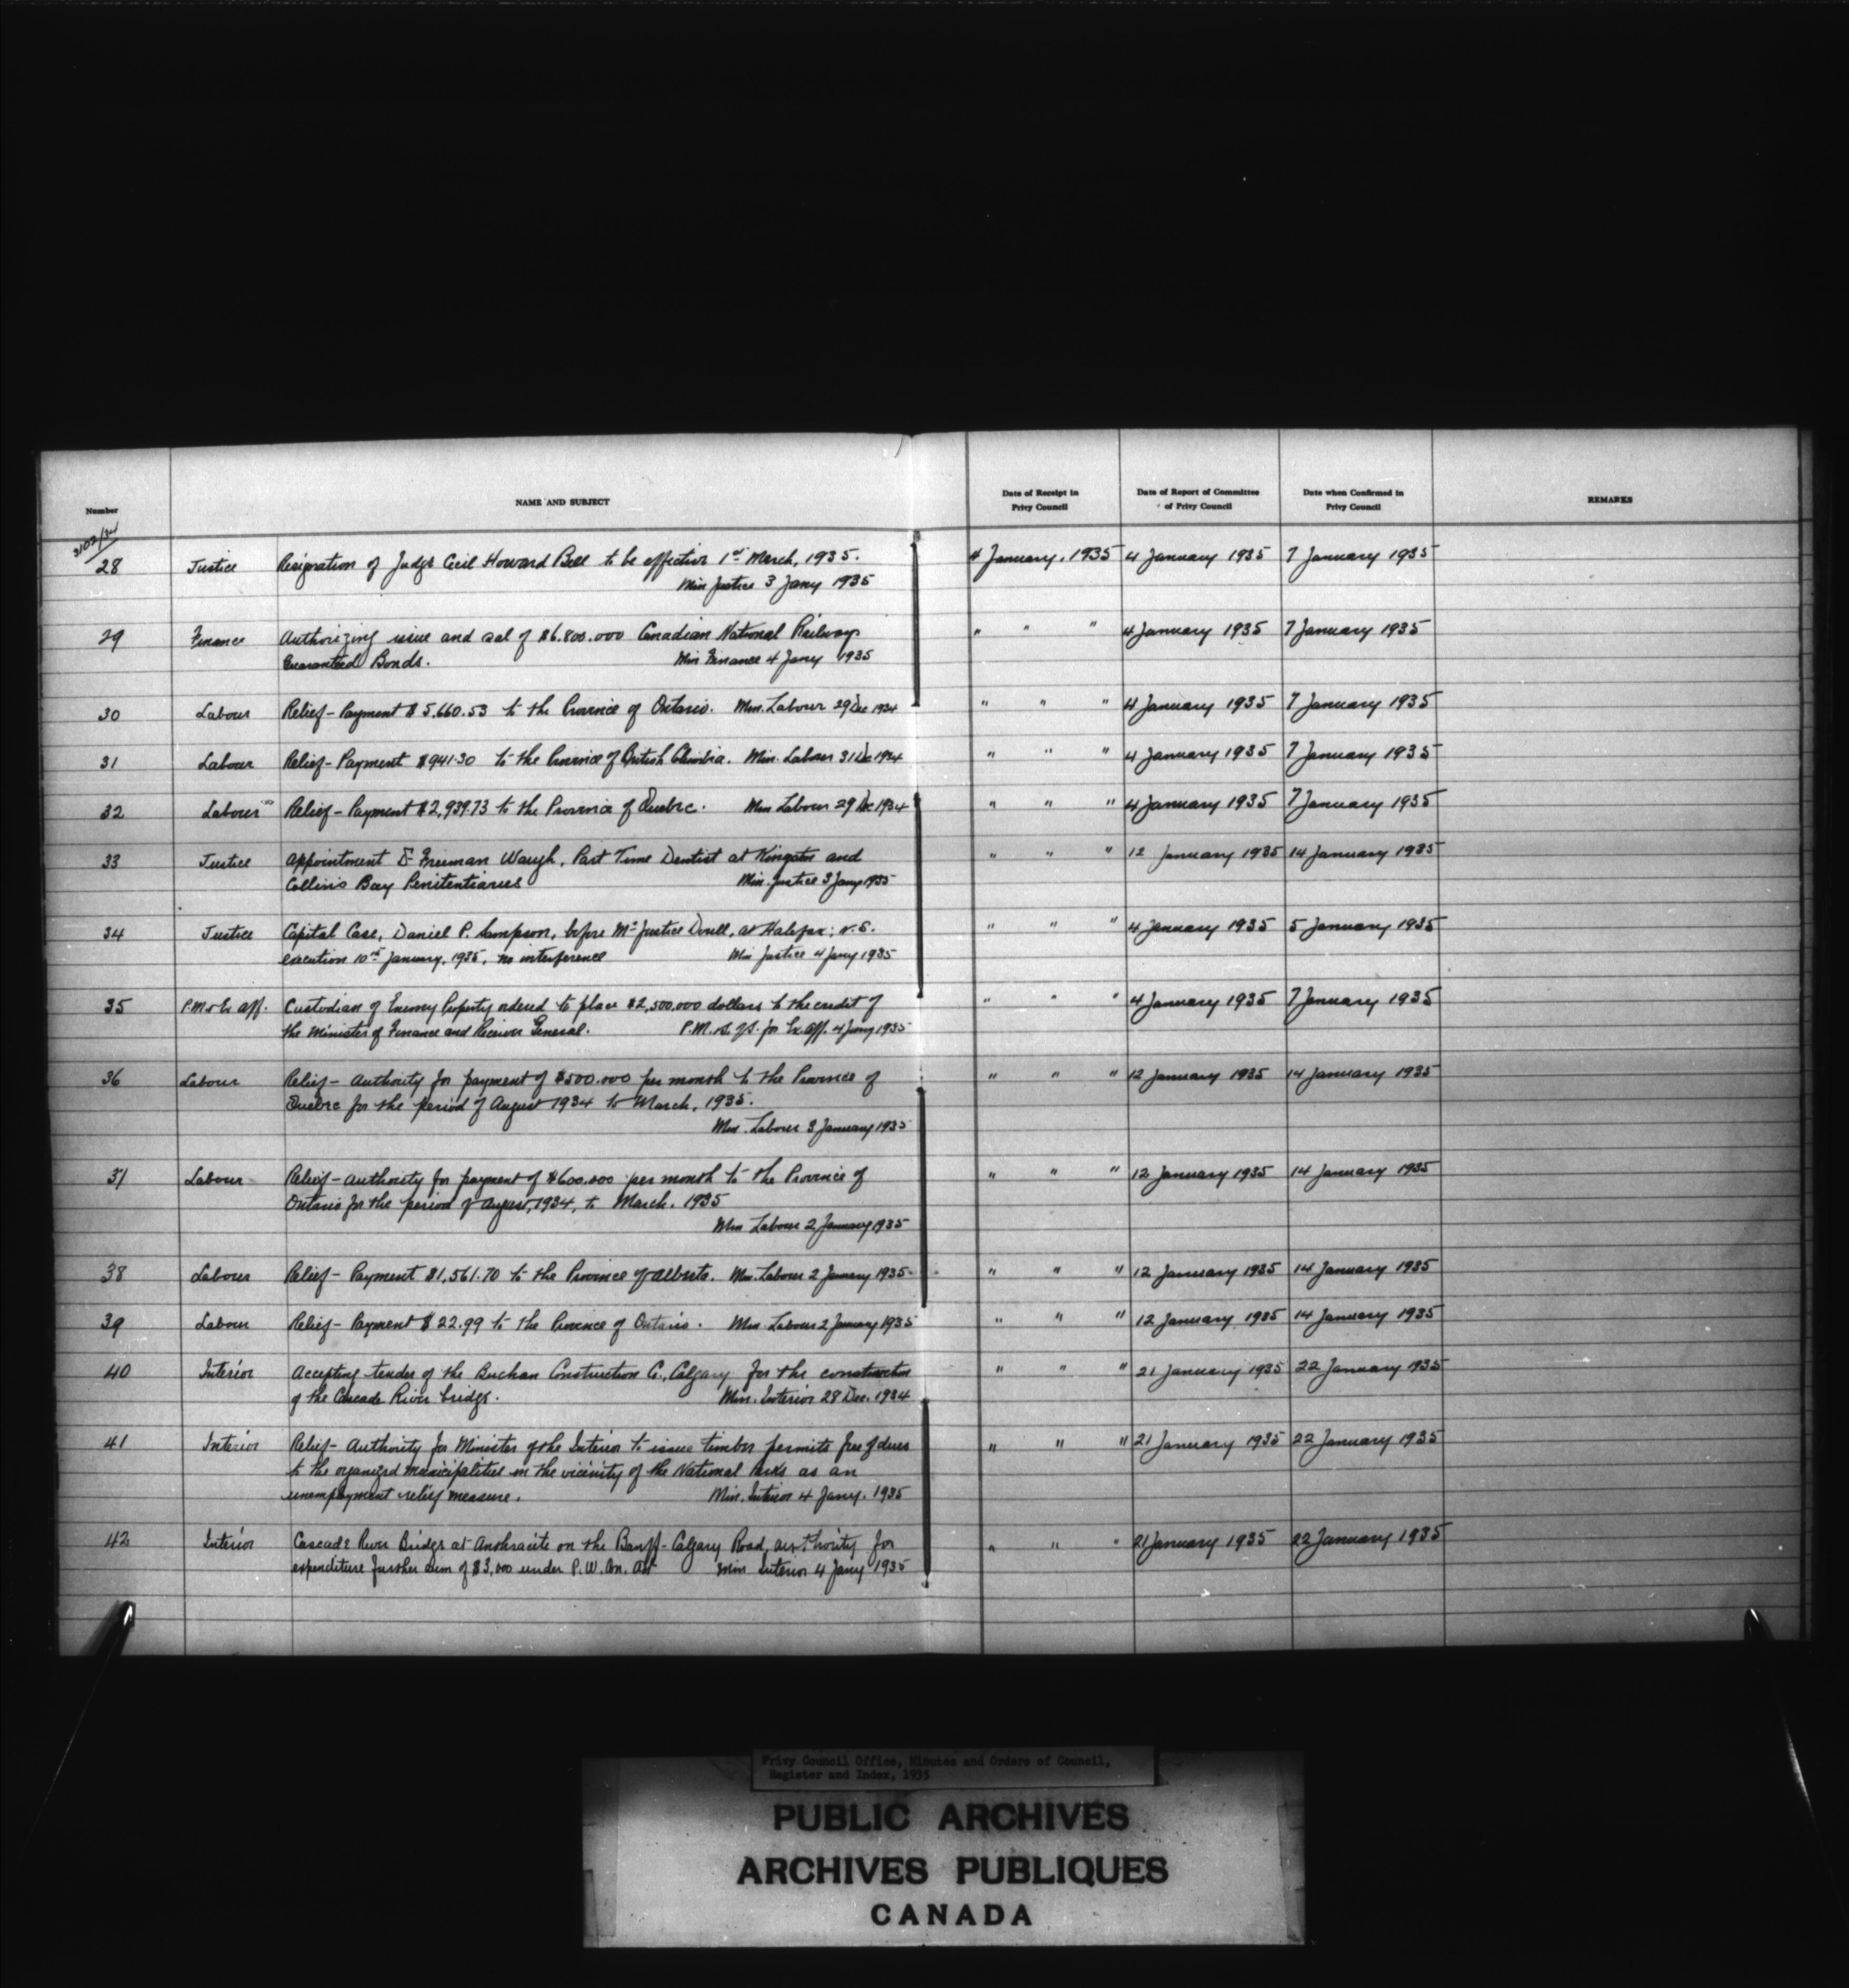 Number
NAME AND SUBJECT
Date of Receipt in
Privy Council
Date of Report of Committee
of Privy Council
Date when Confirmed in
Privy Council
REMARKS
3102/34
28 Justice Resignation of Judge Cecil Howard Bell to be effective 1st March, 1935. 4 January, 1935 4 January 1935 7 January 1935
Min Justice 3 Jany 1935
29 Finance Authorizing issue and sal of $6.800.000 Canadian National Railways " " " 4 January 1935 7 January 1935
Guaranteed Bonds. Min Finance 4 Jany 1935
30 Labour Relief - Payment $5,660.53 to the Province of Ontario. Min. Labour 29 Dec 1934 " " " 4 January 1935 7 January 1935
31 Labour Relief - Payment $941.30 to the Province of British Columbia. Min. Labour 31 Dec 1934 " " " 4 January 1935 7 January 1935
32 Labour Relief - Payment $2,939.73 to the Province of Quebec. Min Labour 29 Dec 1934 " " " 4 January 1935 7 January 1935
33 Justice Appointment Dr Freeman Waugh, Part Time Dentist at Kingston and " " " 12 January 1935 14 January 1935
Collin's Bay Penitentiaries Min. Justice 3 Jany 1935
34 Justice Capital Case, Daniel P. Sampson, before Mr Justice Doull, at Halifax; N.S. " " " 4 January 1935 5 January 1935
execution 10th January, 1935, no interference Min Justice 4 Jany 1935
35 P.M. & Ex Aff. Custodian of Enemy Property ordered to place $2,500,000 dollars to the credit of " " " 4 January 1935 7 January 1935
the Minister of Finance and Receiver General. P.M. & S.S. for Ex. Aff. 4 Jany 1935
36 Labour Relief - Authority for payment of $500.000 per month to the Province of " " " 12 January 1935 14 January 1935
Quebec for the period of August 1934 to March, 1935.
Min. Labour 3 January 1935
37 Labour Relief - Authority for payment of $600.000 per month to the Province of " " " 12 January 1935 14 January 1935
Ontario for the period of August, 1934, to March. 1935
Min Labour 2 January 1935
38 Labour Relief - Payment $1,561.70 to the Province of Alberta. Min. Labour 2 January 1935 " " " 12 January 1935 14 January 1935
39 Labour Relief - Payment $22.99 to the Province of Ontario. Min Labour 2 January 1935 " " " 12 January 1935 14 January 1935
40 Interior Accepting tender of the Buchan Construction Co., Calgary for the construction " " " 21 January 1935 22 January 1935
of the Cascade River bridge. Min. Interior 28 Dec. 1934
41 Interior Relief - Authority for Minister of the Interior to issue timber permits free of dues " " " 21 January 1935 22 January 1935
to the organized municipalities in the vicinity of the National Parks as an
unempayment relief measure. Min. Interior 4 Jany. 1935
42 Interior Cascade River Bridge at Anthracite on the Banff - Calgary Road, authority for " " " 21 January 1935 22 January 1935
expenditure further sum of $3,000 under P.W. Con. Act Min Interior 4 Jany 1935
Privy Council Office, Minutes and Orders of Council,
Register and Index, 1935
PUBLIC ARCHIVES
ARCHIVES PUBLIQUES
CANADA